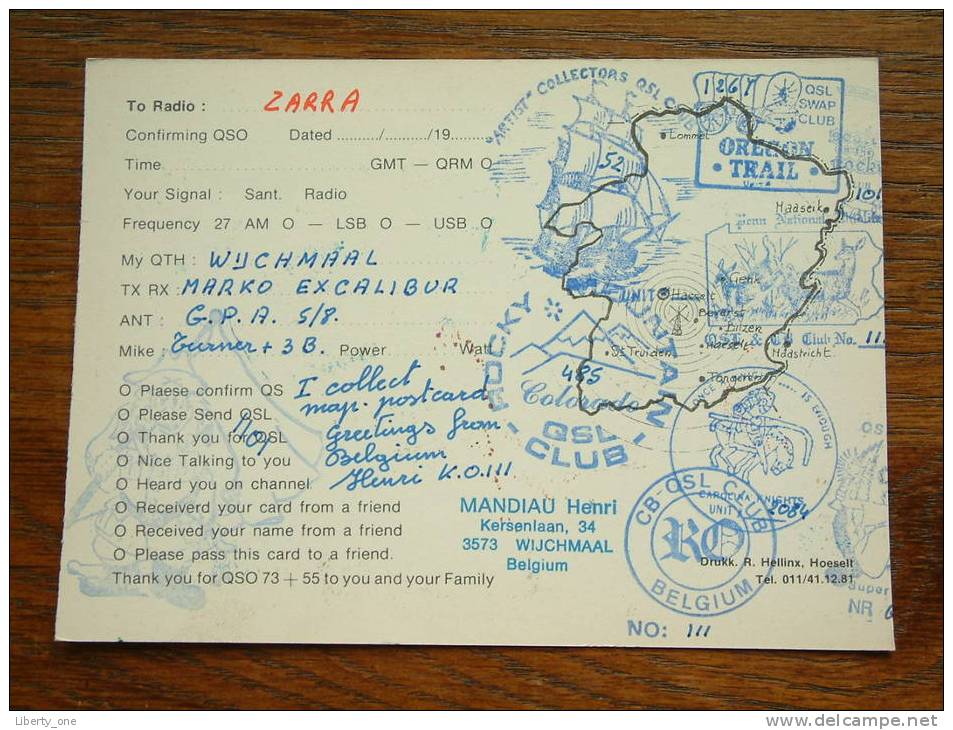 To Radio : ZARRA
Confirming QSO Dated ........./........./19.........
Time GMT — QRM O
Your Signal : Sant. Radio
Frequency 27 AM O — LSB O — USB O
My QTH : WIJCHMAAL
TX RX : MARKO EXCALIBUR
ANT : G.P.A. 5/8.
Mike Turner + 3 B. Power Watt
O Plaese confirm QS
O Please Send QSL
O Thank you for QSL
O Nice Talking to you
O Heard you on channel
O Receiverd your card from a friend
O Received your name from a friend
O Please pass this card to a friend.
Thank you for QSO 73 + 55 to you and your Family
I collect
map. postcard
Greetings from
Belgium
Henri K.O.III
MANDIAU Henri
Kersenlaan, 34
3573 WIJCHMAAL
Belgium
"ARTIST" COLLECTORS QSL
52
1267
QSL
SWAP
CLUB
OREGON
• TRAIL •
Lommel
Maaseik
Penn National
Genk
UNIT
Hasselt
Beverst
Bilzen
Hoeselt
Maastricht
St Truiden
Tongeren
QSL & CB Club No. 11
ROCKY MOUNTAIN
485
Colorado
QSL
CLUB
ONCE
IS ENOUGH
CAROLINA KNIGHTS
UNIT 2084
CB-QSL CLUB
RO
BELGIUM
NO: 111
Drukk. R. Hellinx, Hoeselt
Tel. 011/41.12.81
Super
NR
Liberty_one
delcampe.net